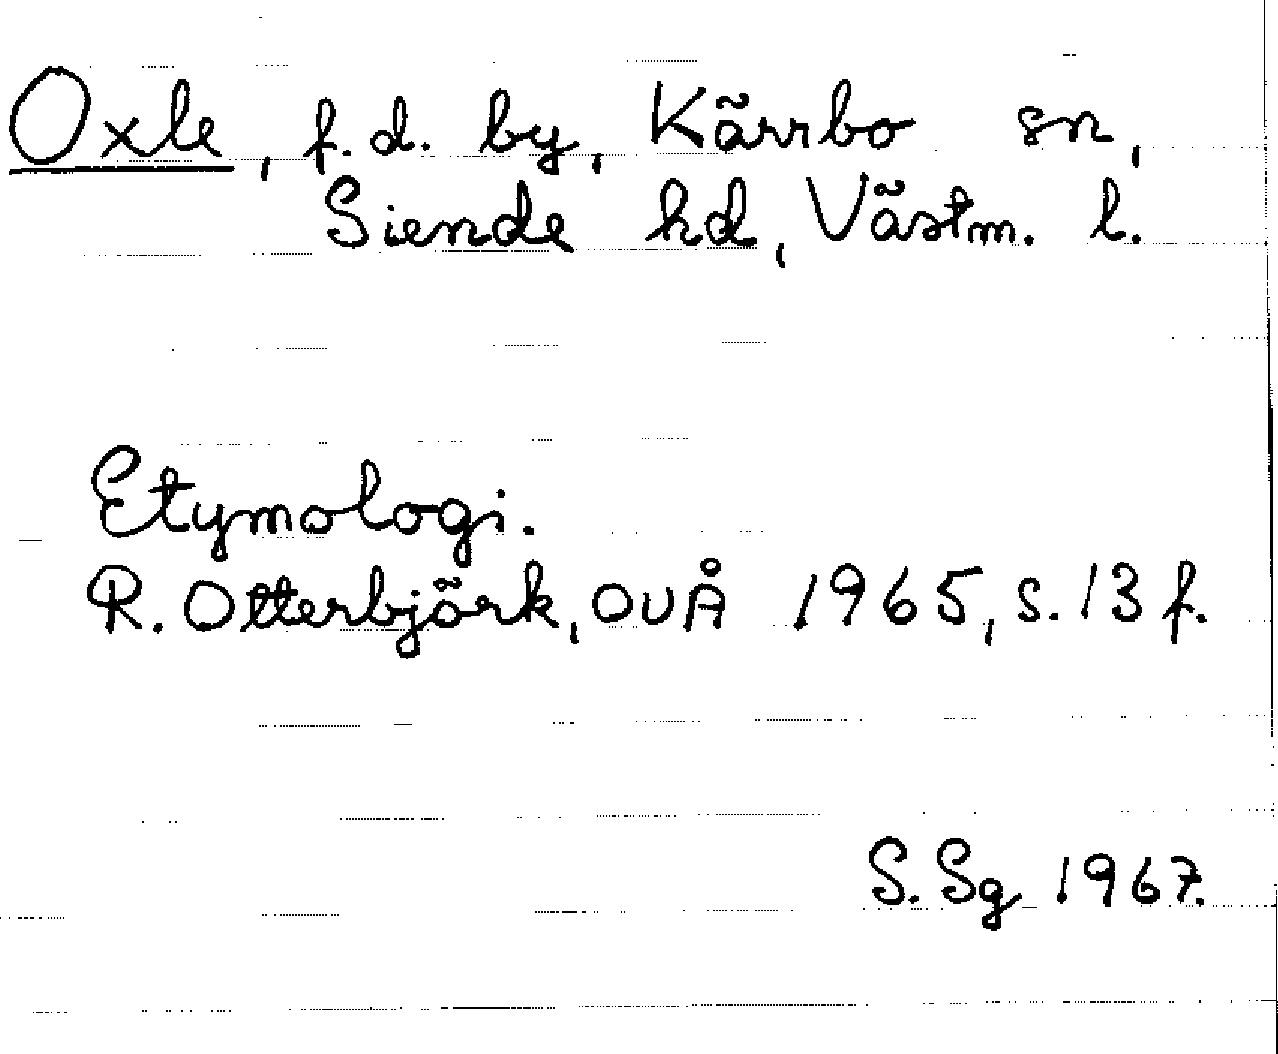 Oxle, f.d. by, Kärrbo sn,
Siende hd, Västm. l.
Etymologi.
R. Otterbjörk, OUÅ 1965, s. 13 f.
S. Sg 1967.